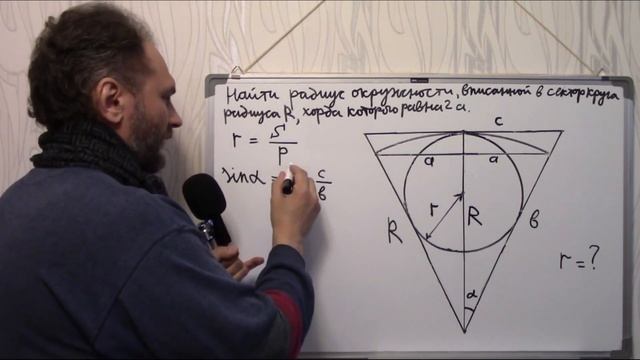 Найти радиус окружности, вписанной в сектор круга
радиуса R, хорда которого равна 2 a.
r = S
p
sinα = c
в
c
a a
r R
R в
α
r = ?